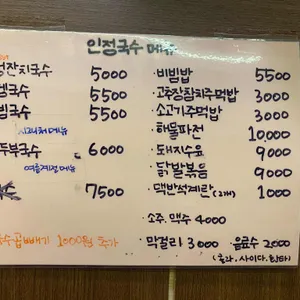 인정국수 메뉴
잔치국수 5000
국수 5000
국수 5000
두부국수 6000
여름계절메뉴
7500
곱빼기 1000원 추가
·비빔밥 5500
·고추장참치주먹밥 3000
·소고기주먹밥 3000
·해물파전 10,000
·돼지수육 9000
·닭발볶음 9000
·맥반석계란(2개) 1000
·소주, 맥주 4000
막걸리 3000 음료수 2000
(콜라, 사이다, 환타)